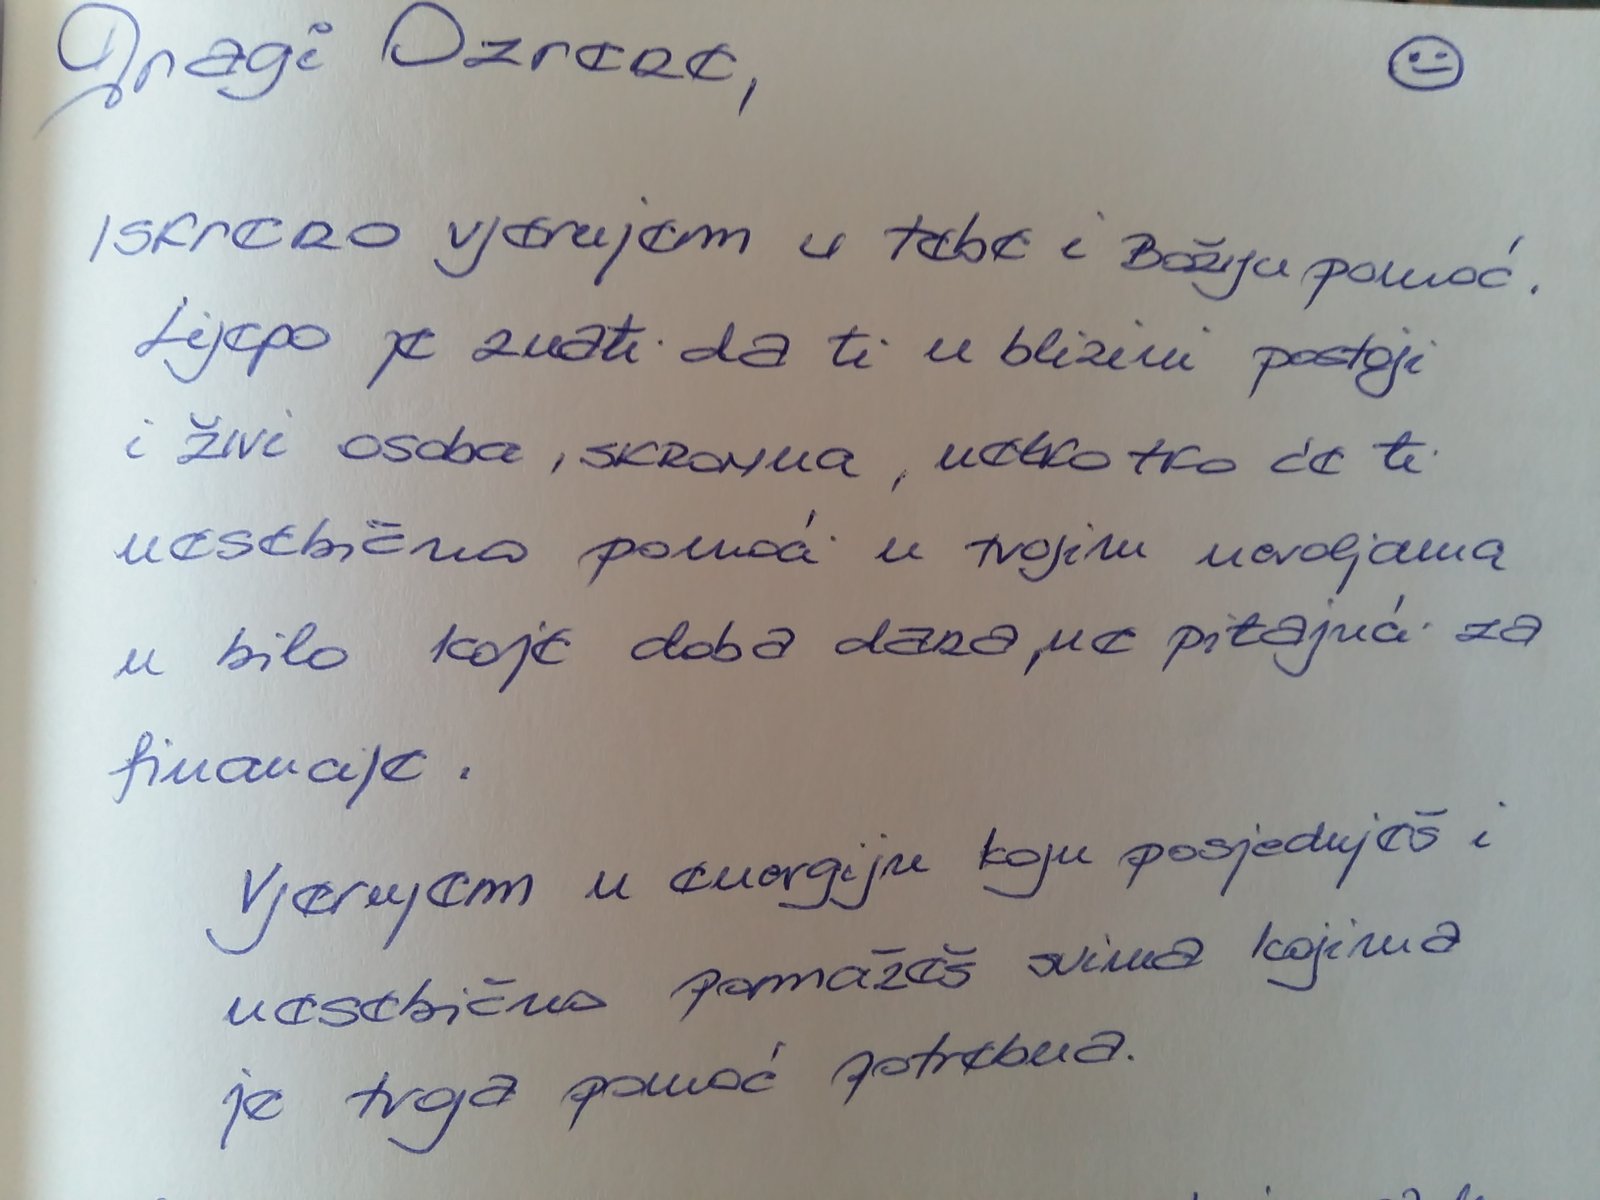 Dragi Ozrene,
Iskreno vjerujem u tebe i Božiju pomoć.
Lijepo je znati da ti u blizini postoji
i živi osoba, skromna, netko tko će ti
nesebično pomoći u tvojim nevoljama
u bilo koje doba dana, ne pitajući za
financije.
Vjerujem u energiju koju posjeduješ i
nesebično pomažeš svima kojima
je tvoja pomoć potrebna.